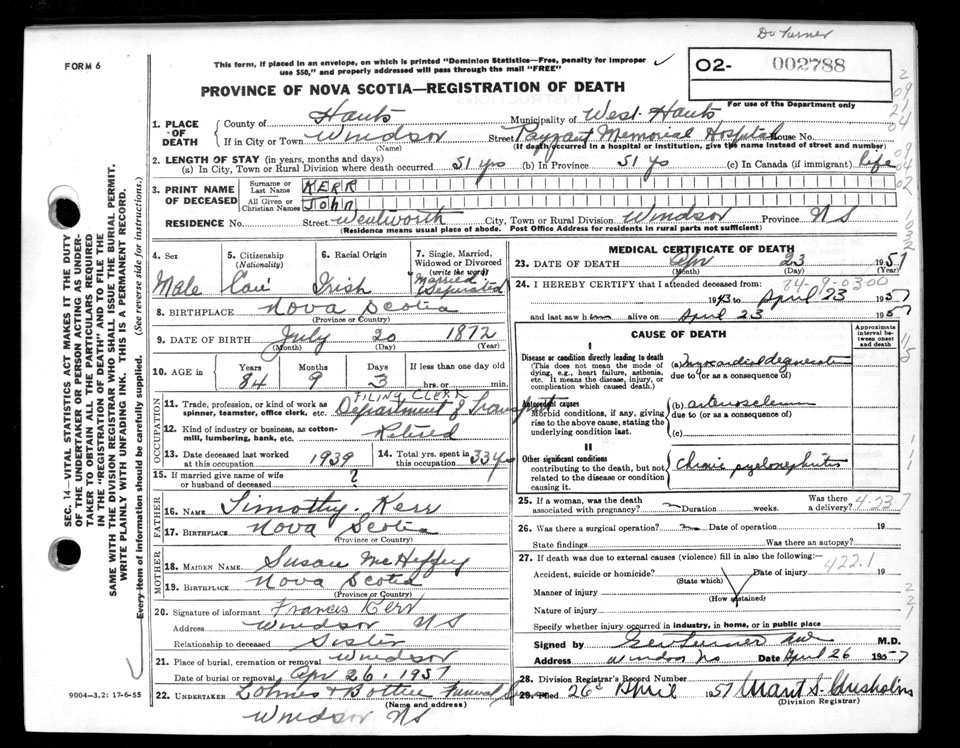 Dr Turner
FORM 6
This form, if placed in an envelope, on which is printed "Dominion Statistics—Free, penalty for improper use $50," and properly addressed will pass through the mail "FREE"
02- 002788
PROVINCE OF NOVA SCOTIA—REGISTRATION OF DEATH
For use of the Department only
1. PLACE OF DEATH
County of Hants Municipality of West Hants
If in City or Town Windsor Street Payzant Memorial Hospital House No.
(Name) (If death occurred in a hospital or institution, give the name instead of street and number)
2. LENGTH OF STAY (in years, months and days)
(a) In City, Town or Rural Division where death occurred 51 yrs (b) In Province 51 ys (c) In Canada (if immigrant) life
3. PRINT NAME OF DECEASED
Surname or Last Name KERR
All Given or Christian Names John
RESIDENCE No. Street Wentworth City, Town or Rural Division Windsor Province NS
(Residence means usual place of abode. Post Office Address for residents in rural parts not sufficient)
4. Sex Male
5. Citizenship (Nationality) Can
6. Racial Origin Irish
7. Single, Married, Widowed or Divorced (write the word) Married Separated
8. BIRTHPLACE Nova Scotia
(Province or Country)
9. DATE OF BIRTH July 20 1872
(Month) (Day) (Year)
10. AGE in Years 84 Months 9 Days 3 If less than one day old hrs. or min.
OCCUPATION
11. Trade, profession, or kind of work as spinner, teamster, office clerk, etc. FILING CLERK Department of Transport
12. Kind of industry or business, as cotton-mill, lumbering, bank, etc. Retired
13. Date deceased last worked at this occupation 1939
14. Total yrs. spent in this occupation 33 ys
15. If married give name of wife or husband of deceased ?
FATHER
16. NAME Timothy Kerr
17. BIRTHPLACE Nova Scotia
(Province or Country)
MOTHER
18. MAIDEN NAME Susan McHeffey
19. BIRTHPLACE Nova Scotia
(Province or Country)
20. Signature of informant Frances Kerr
Address Windsor NS
Relationship to deceased Sister
21. Place of burial, cremation or removal Windsor
Date of burial or removal Apr 26, 1957
22. UNDERTAKER Funeral
(Name and address)
Windsor NS
MEDICAL CERTIFICATE OF DEATH
23. DATE OF DEATH Apr 23 1957
(Month) (Day) (Year)
84-9-03-00
24. I HEREBY CERTIFY that I attended deceased from:
1943 to April 23 1957
and last saw him alive on April 23 1957
CAUSE OF DEATH
Approximate interval between onset and death
I
Disease or condition directly leading to death
(This does not mean the mode of dying, e.g., heart failure, asthenia, etc. It means the disease, injury, or complication which caused death.)
(a) Myocardial degeneration
due to (or as a consequence of)
Antecedent causes
Morbid conditions, if any, giving rise to the above cause, stating the underlying condition last.
(b) arteriosclerosis
due to (or as a consequence of)
(c)
II
Other significant conditions
contributing to the death, but not related to the disease or condition causing it.
Chronic pyelonephritis
25. If a woman, was the death associated with pregnancy? Duration weeks. Was there a delivery? 4-23-7
26. Was there a surgical operation? Date of operation 19
State findings Was there an autopsy?
27. If death was due to external causes (violence) fill in also the following:—
422.1
Accident, suicide or homicide? Date of injury 19
(State which)
Manner of injury
(How sustained)
Nature of injury
Specify whether injury occurred in industry, in home, or in public place
Signed by Turner M.D.
Address Windsor NS Date April 26 1957
28. Division Registrar's Record Number
29. Filed 26 April 1957 Grant S. Chisholm
(Division Registrar)
SEC. 14—VITAL STATISTICS ACT MAKES IT THE DUTY OF THE UNDERTAKER OR PERSON ACTING AS UNDERTAKER TO OBTAIN ALL THE PARTICULARS REQUIRED IN THE "REGISTRATION OF DEATH" AND TO FILE THE SAME WITH THE DIVISION REGISTRAR WHO SHALL ISSUE THE BURIAL PERMIT.
WRITE PLAINLY WITH UNFADING INK. THIS IS A PERMANENT RECORD.
Every item of information should be carefully supplied. (See reverse side for instructions.)
9004-3.2: 17-6-55